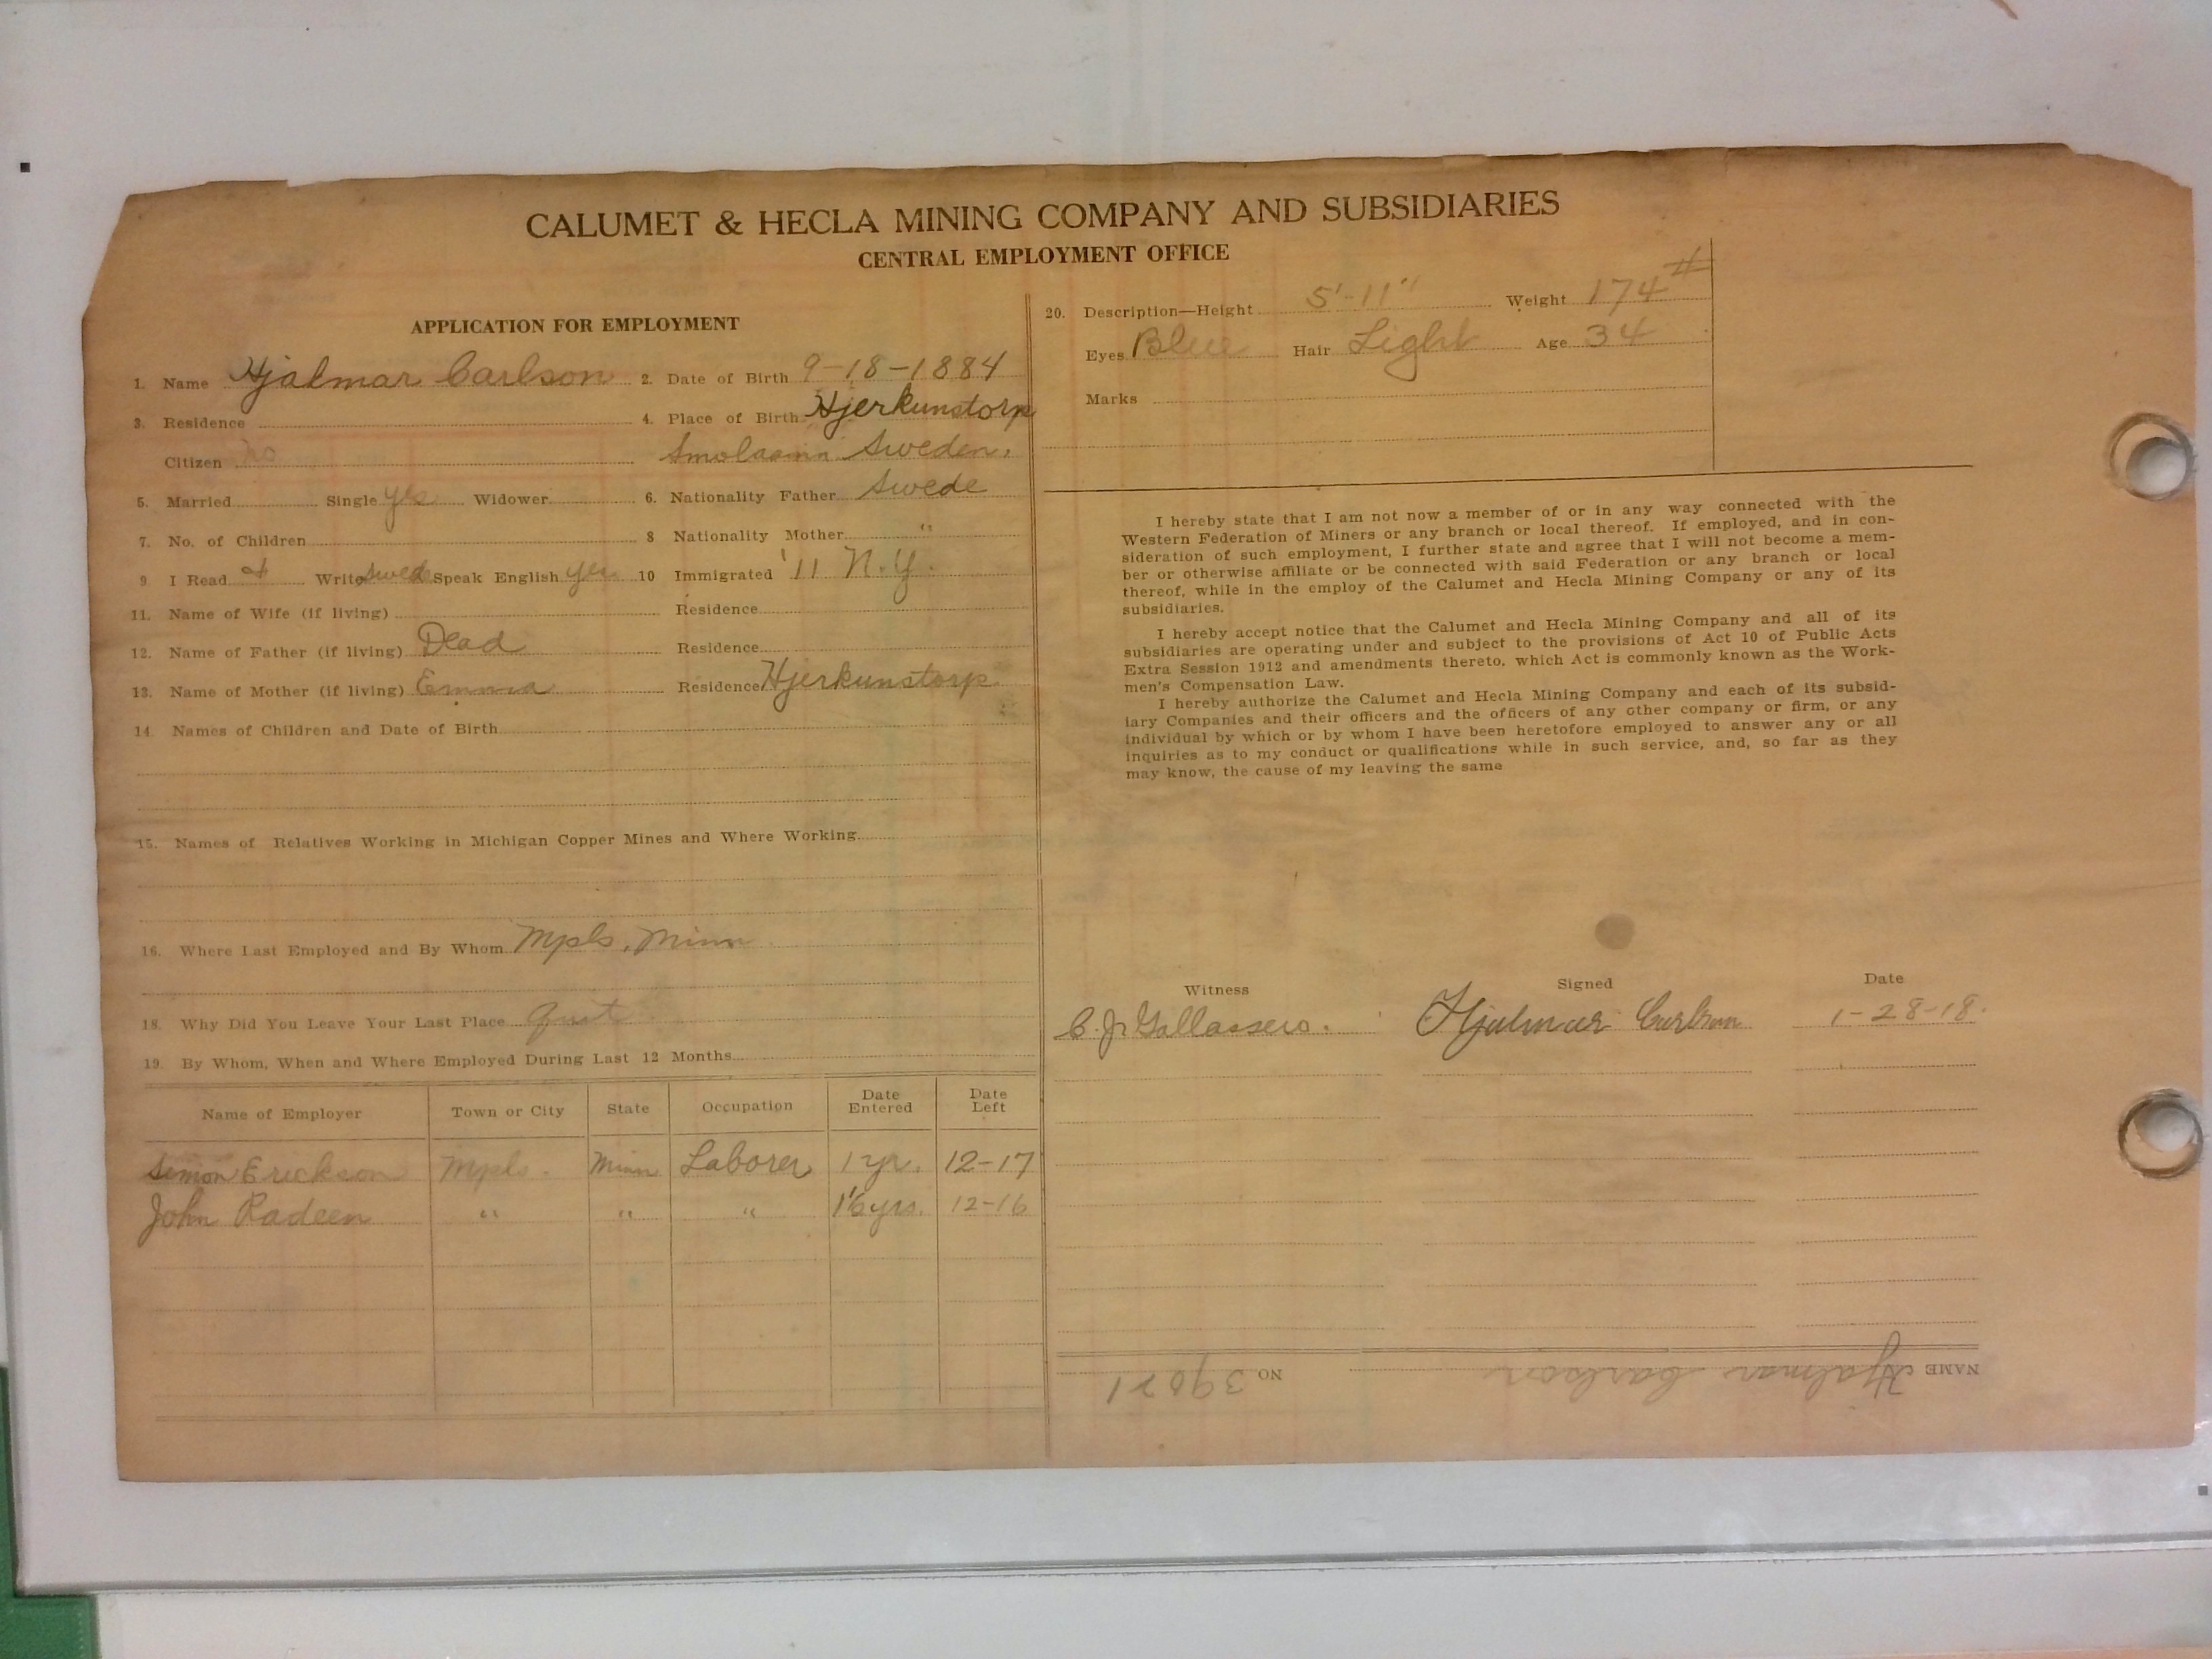 CALUMET & HECLA MINING COMPANY AND SUBSIDIARIES
CENTRAL EMPLOYMENT OFFICE
APPLICATION FOR EMPLOYMENT
1. Name Hjalmar Carlson 2. Date of Birth 9-18-1884
3. Residence 4. Place of Birth Hjerkunstorp
Citizen no Smolaann Sweden.
5. Married Single yes Widower 6. Nationality Father Swede
7. No. of Children 8 Nationality Mother "
9. I Read & Write Swed Speak English yes 10 Immigrated '11 N.Y.
11. Name of Wife (if living) Residence
12. Name of Father (if living) Dead Residence
13. Name of Mother (if living) Emma Residence Hjerkunstorp
14. Names of Children and Date of Birth
15. Names of Relatives Working in Michigan Copper Mines and Where Working
16. Where Last Employed and By Whom Mpls, Minn
18. Why Did You Leave Your Last Place Quit
19. By Whom, When and Where Employed During Last 12 Months
Name of Employer Town or City State Occupation Date Entered Date Left
Simon Erickson Mpls. Minn Laborer 1 yr. 12-17
John Radeen " " " yrs. 12-16
20. Description—Height 5'-11" Weight 174#
Eyes Blue Hair Light Age 34
Marks
I hereby state that I am not now a member of or in any way connected with the
Western Federation of Miners or any branch or local thereof. If employed, and in con-
sideration of such employment, I further state and agree that I will not become a mem-
ber or otherwise affiliate or be connected with said Federation or any branch or local
thereof, while in the employ of the Calumet and Hecla Mining Company or any of its
subsidiaries.
I hereby accept notice that the Calumet and Hecla Mining Company and all of its
subsidiaries are operating under and subject to the provisions of Act 10 of Public Acts
Extra Session 1912 and amendments thereto, which Act is commonly known as the Work-
men's Compensation Law.
I hereby authorize the Calumet and Hecla Mining Company and each of its subsid-
iary Companies and their officers and the officers of any other company or firm, or any
individual by which or by whom I have been heretofore employed to answer any or all
inquiries as to my conduct or qualifications while in such service, and, so far as they
may know, the cause of my leaving the same
Witness Signed Date
Hjalmar Carlson 1-28-18.
NAME Hjalmar Carlson NO 39021